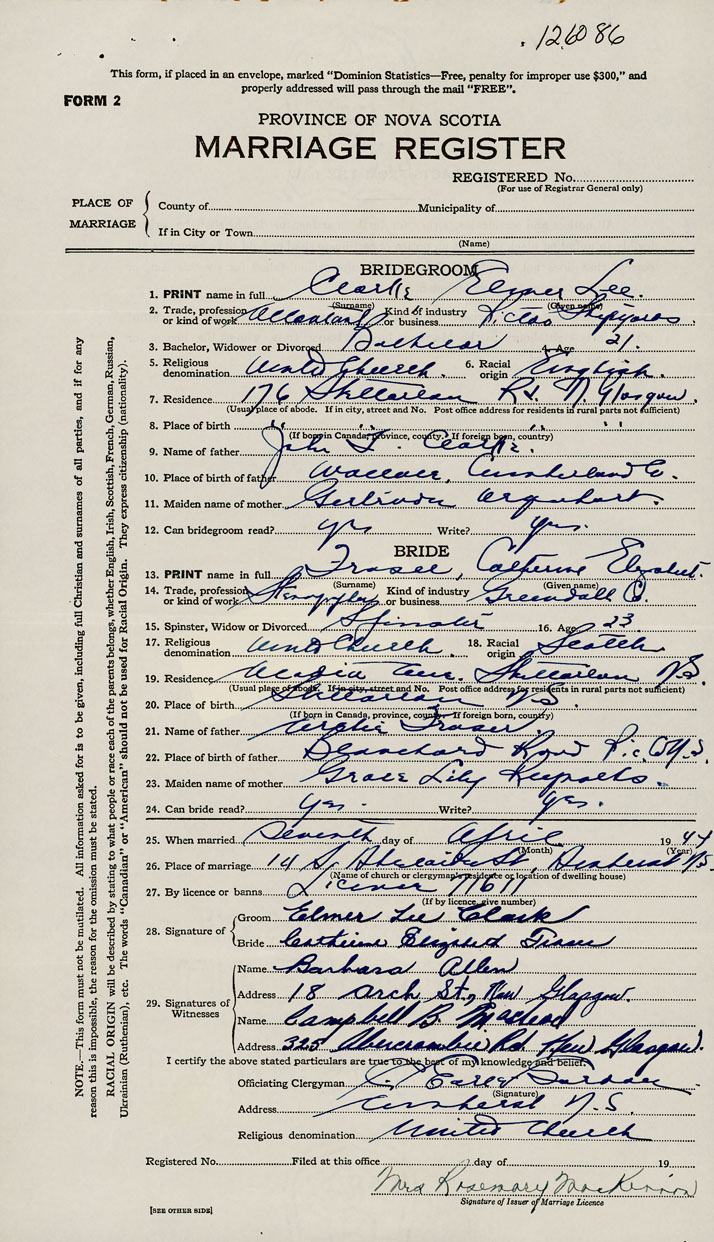 126086
This form, if placed in an envelope, marked "Dominion Statistics—Free, penalty for improper use $300," and
properly addressed will pass through the mail "FREE".
FORM 2
PROVINCE OF NOVA SCOTIA
MARRIAGE REGISTER
REGISTERED No.
(For use of Registrar General only)
PLACE OF MARRIAGE
County of Municipality of
If in City or Town
(Name)
BRIDEGROOM
1. PRINT name in full Clarke Elmer Lee.
(Surname) (Given name)
2. Trade, profession or kind of work Kind of industry or business Pictou Shipyards
3. Bachelor, Widower or Divorced Bachelor 4. Age 21.
5. Religious denomination United Church. 6. Racial origin English.
7. Residence 176 Stellarton Rd. N. Glasgow.
(Usual place of abode. If in city, street and No. Post office address for residents in rural parts not sufficient)
8. Place of birth " " " "
(If born in Canada, province, county. If foreign born, country)
9. Name of father John Clarke.
10. Place of birth of father Wallace, Cumberland Co.
11. Maiden name of mother Gertrude Urquhart.
12. Can bridegroom read? yes Write? yes.
BRIDE
13. PRINT name in full Fraser, Catherine Elizabeth.
(Surname) (Given name)
14. Trade, profession or kind of work Kind of industry or business
15. Spinster, Widow or Divorced Spinster 16. Age 23
17. Religious denomination United Church. 18. Racial origin Scotch
19. Residence Acadia Ave. Stellarton N.S.
(Usual place of abode. If in city, street and No. Post office address for residents in rural parts not sufficient)
20. Place of birth Stellarton N.S.
(If born in Canada, province, county. If foreign born, country)
21. Name of father Archie Fraser.
22. Place of birth of father Blanchard Road Pic. Co. N.S.
23. Maiden name of mother Grace Lily Reynolds.
24. Can bride read? yes. Write? yes.
25. When married Seventh day of April 1944
(Month) (Year)
26. Place of marriage 14 S. Adelaide St, Amherst N.S.
(Name of church or clergyman's residence or location of dwelling house)
27. By licence or banns License 71611
(If by licence, give number)
28. Signature of
Groom Elmer Lee Clark
Bride Catherine Elizabeth Fraser
29. Signatures of Witnesses
Name Barbara Allen
Address 18 Arch St., New Glasgow.
Name Campbell B. MacLeod
Address 325 Abercrombie Rd. New Glasgow.
I certify the above stated particulars are true to the best of my knowledge and belief.
Officiating Clergyman
(Signature)
Address Amherst N.S.
Religious denomination United Church
Registered No. Filed at this office day of 19
Mrs Rosemary MacKinnon
Signature of Issuer of Marriage Licence
[SEE OTHER SIDE]
NOTE.—This form must not be mutilated. All information asked for is to be given, including full Christian and surnames of all parties, and if for any
reason this is impossible, the reason for the omission must be stated.
RACIAL ORIGIN will be described by stating to what people or race each of the parents belongs, whether English, Irish, Scottish, French, German, Russian,
Ukrainian (Ruthenian), etc. The words "Canadian" or "American" should not be used for Racial Origin. They express citizenship (nationality).